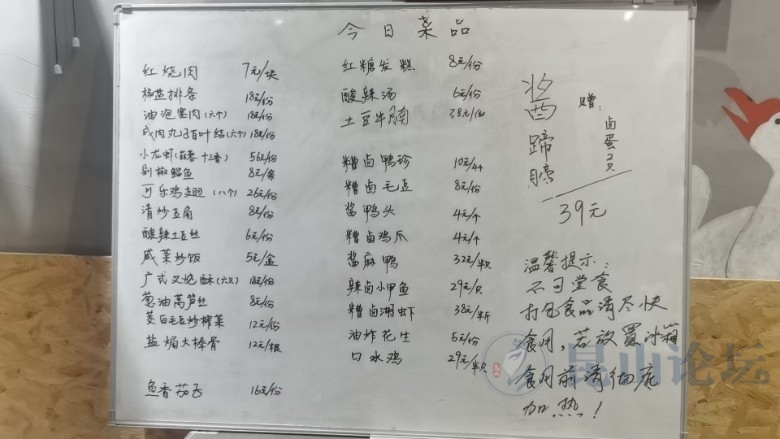 今日菜品
红烧肉 7元/块
椒盐排条 18元/份
油泡塞肉(六个) 18元/份
咸肉丸子百叶结(六个) 18元/份
小龙虾(蒜香 十三香) 56元/份
剁椒鳊鱼 8元/份
可乐鸡翅 (八个) 26元/份
清炒豆角 8元/份
酸辣土豆丝 6元/份
咸菜炒饭 5元/盒
广式叉烧酥(六只) 18元/份
葱油莴笋丝 8元/份
茭白毛豆炒榨菜 12元/份
盐焗大棒骨 12元/根
鱼香茄子 16元/份
红糖发糕 8元/份
酸辣汤 6元/份
土豆牛腩 38元/份
糟卤鸭珍 10元/4个
糟卤毛豆 8元/份
酱鸭头 4元/个
糟卤鸡爪 4元/个
酱麻鸭 32元/半只
辣卤小甲鱼 29元/只
糟卤湖虾 38元/半斤
油炸花生 5元/份
口水鸡 29元/半只
酱蹄膀
赠:卤蛋2只
39元
温馨提示:
不可堂食
打包食品请尽快
食用,若放置冰箱
食用前请彻底
加热!
昆山论坛